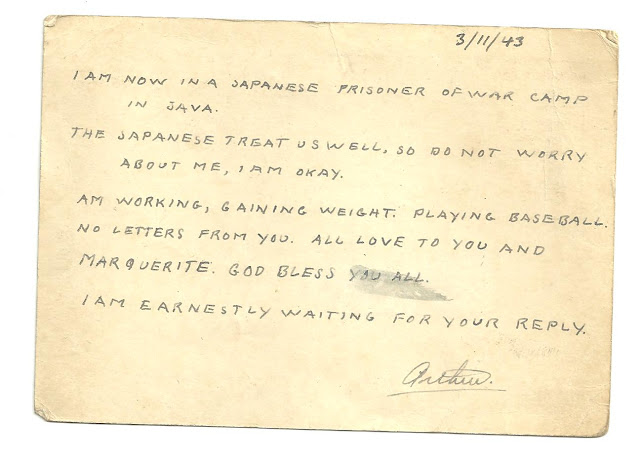 3/11/43
I AM NOW IN A JAPANESE PRISONER OF WAR CAMP
IN JAVA.
THE JAPANESE TREAT US WELL, SO DO NOT WORRY
ABOUT ME, I AM OKAY.
AM WORKING, GAINING WEIGHT. PLAYING BASEBALL.
NO LETTERS FROM YOU. ALL LOVE TO YOU AND
MARQUERITE. GOD BLESS YOU ALL.
I AM EARNESTLY WAITING FOR YOUR REPLY.
Arthur.